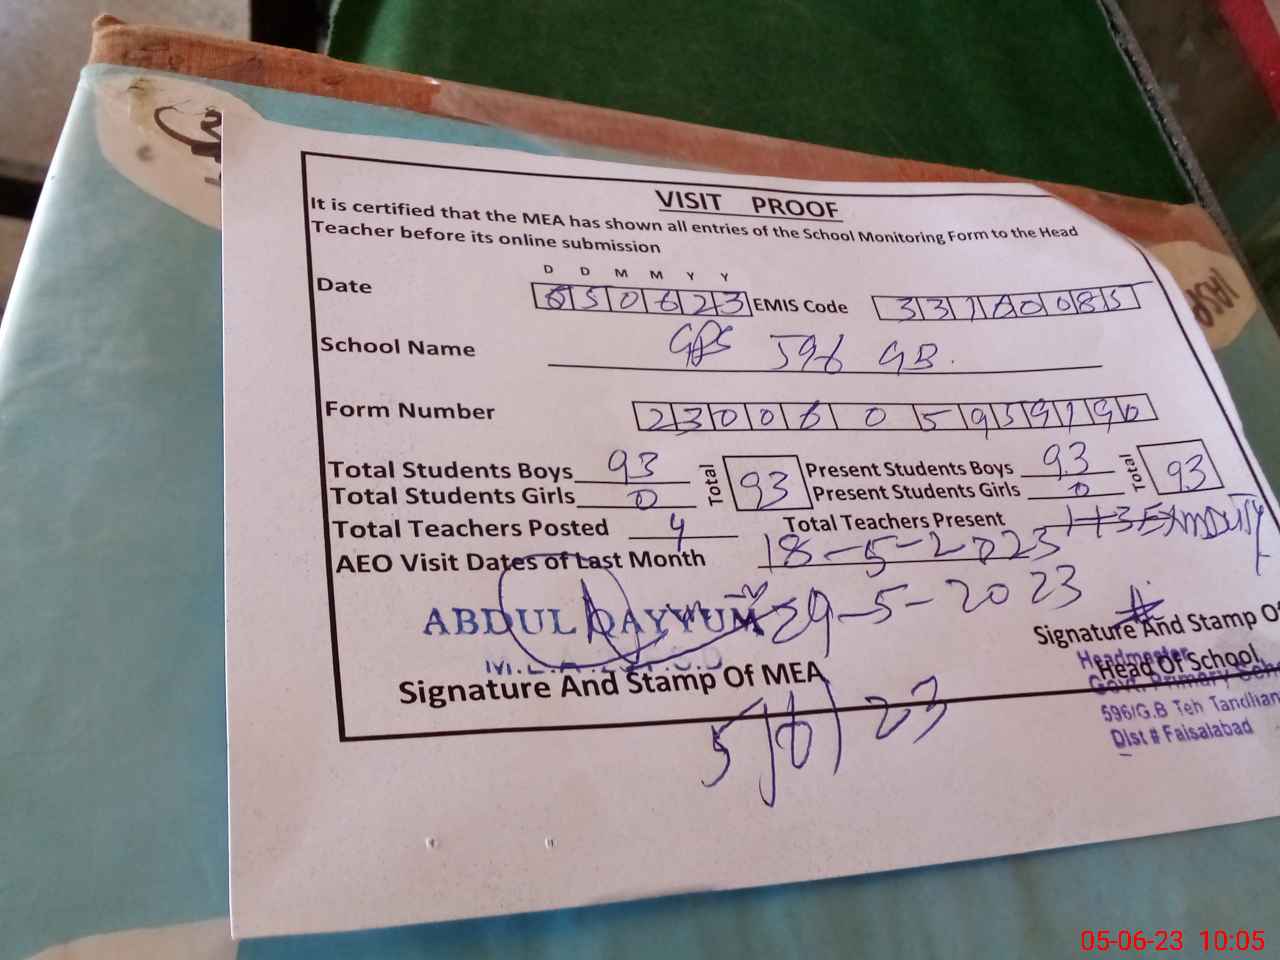 VISIT PROOF
It is certified that the MEA has shown all entries of the School Monitoring Form to the Head
Teacher before its online submission
D D M M Y Y
Date 050623 EMIS Code 33100085
School Name GPS 596 GB.
Form Number
Total Students Boys 93 Total 93 Present Students Boys 93 Total 93
Total Students Girls 0 Present Students Girls 0
Total Teachers Posted 4 Total Teachers Present 1+3
AEO Visit Dates of Last Month 18-5-2023
29-5-2023
ABDUL QAYYUM
Signature And Stamp Of MEA
Signature And Stamp O
Head Of School
Headmaster
Govt. Primary
596/G.B Teh Tandlian
Dist # Faisalabad
5/6/23
05-06-23 10:05